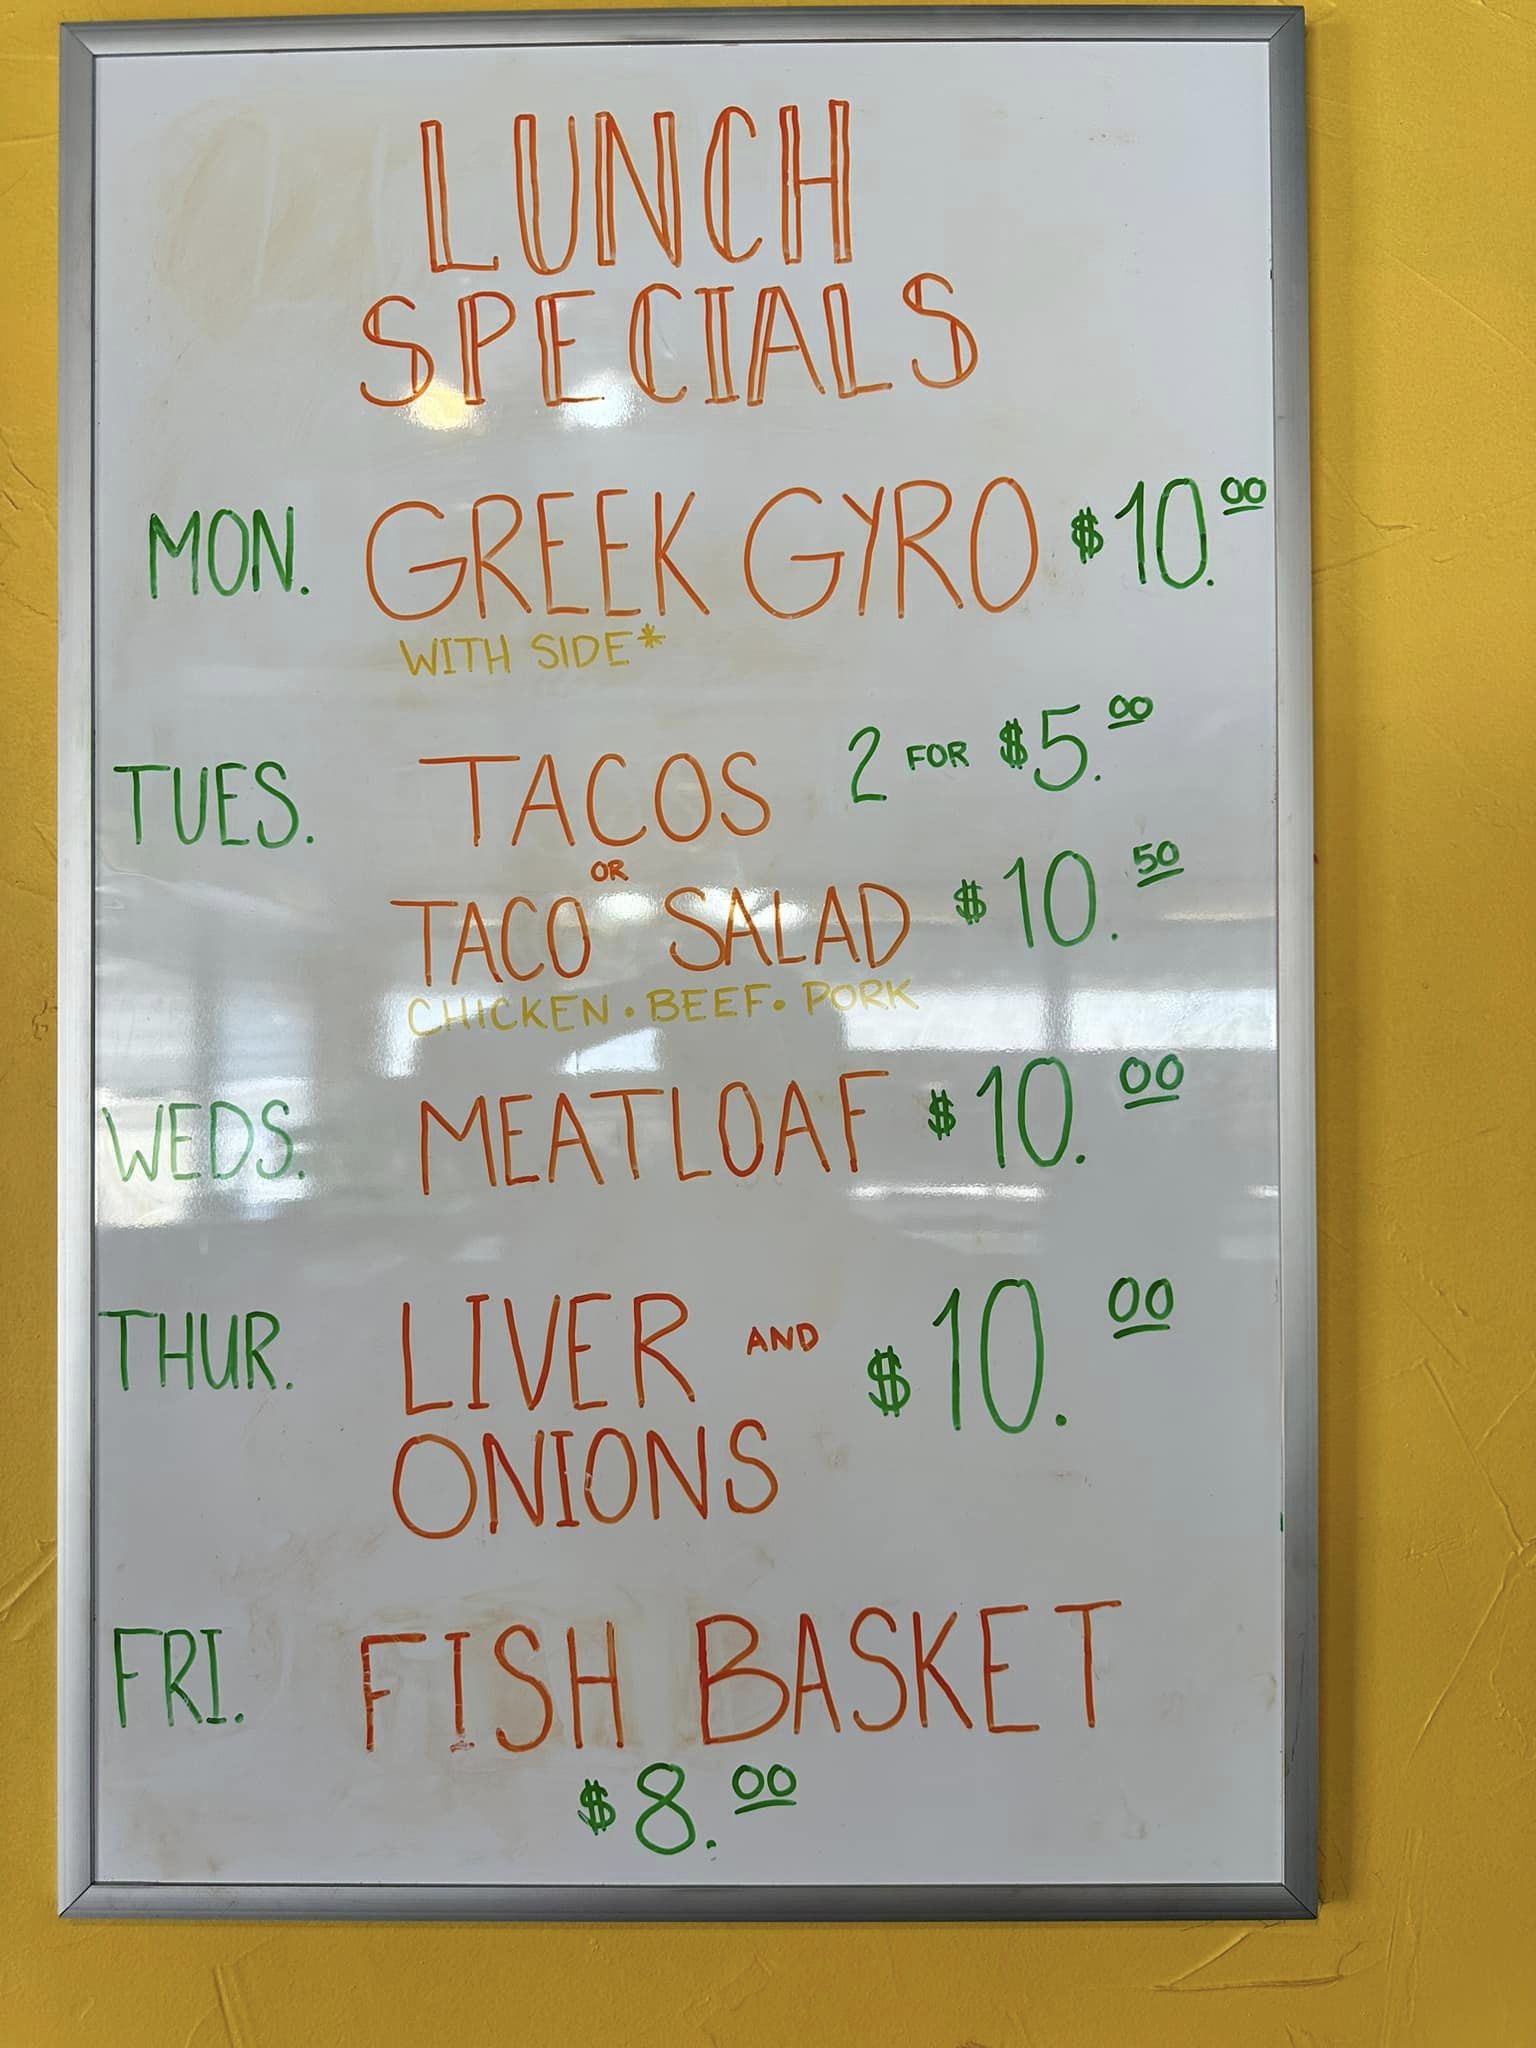 LUNCH
SPECIALS
MON. GREEK GYRO $10.00
WITH SIDE*
TUES. TACOS 2 FOR $5.00
OR
TACO SALAD $10.50
CHICKEN • BEEF • PORK
WEDS. MEATLOAF $10.00
THUR. LIVER AND $10.00
ONIONS
FRI. FISH BASKET
$8.00